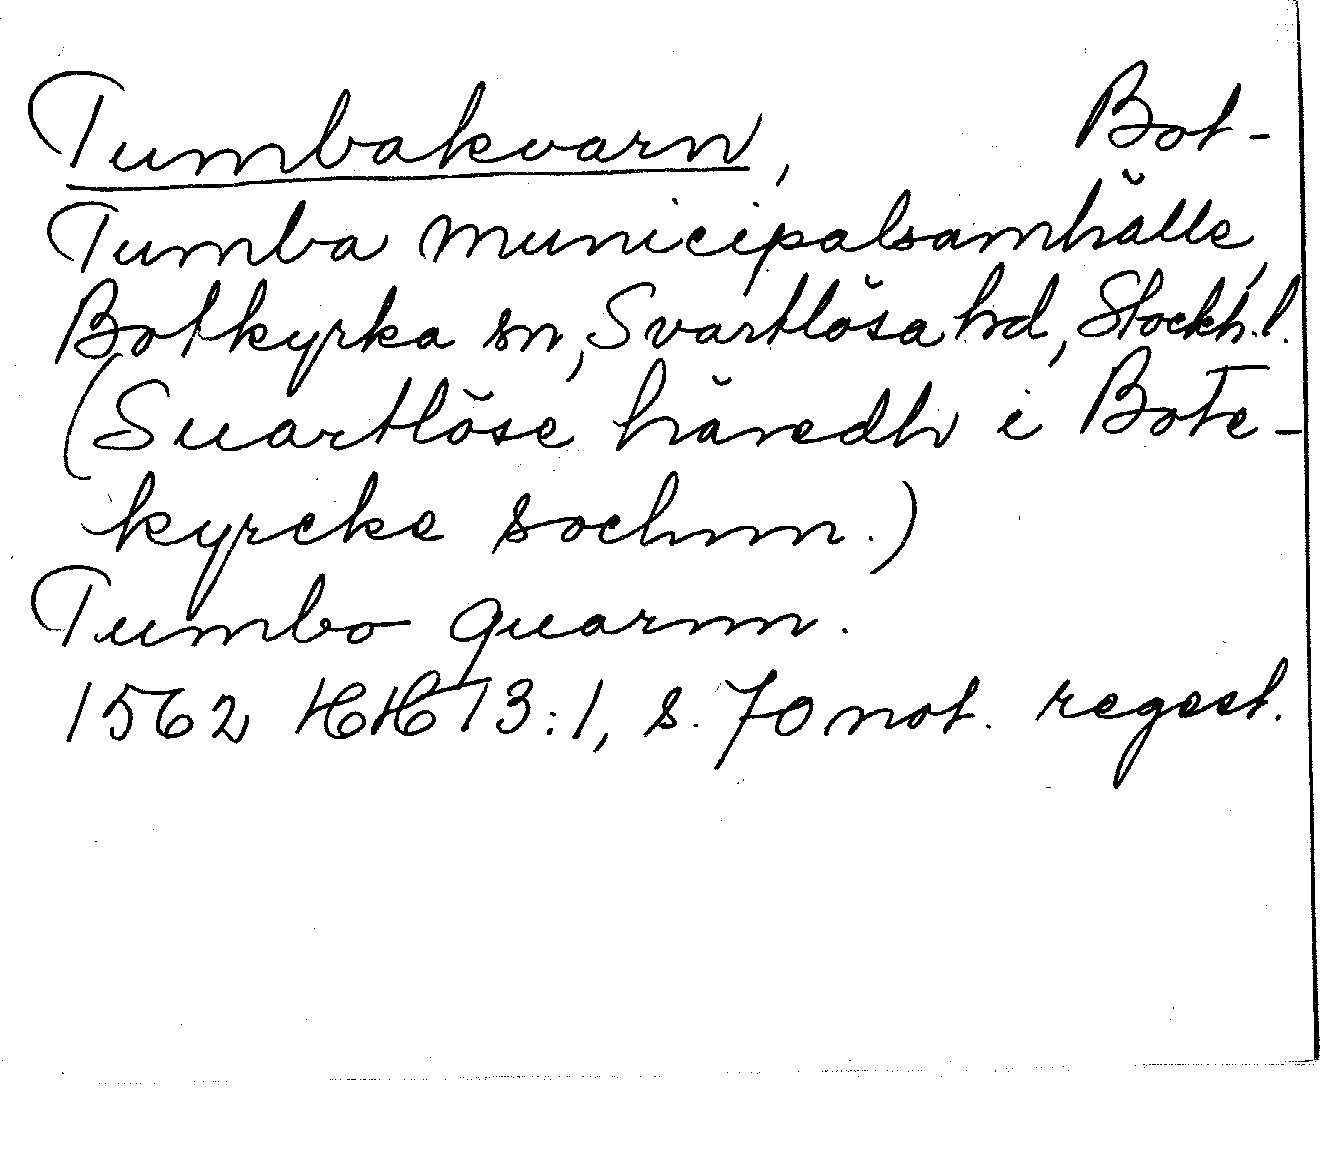 Tumbakvarn, Bot-
Tumba municipalsamhälle,
Botkyrka sn, Svartlösa hd, Stockh. l.
(Suartlöse häredh i Bote-
kyrcke sochnn.)
Tumbo quarnn.
1562 HH 13:1, s. 70 not. regest.